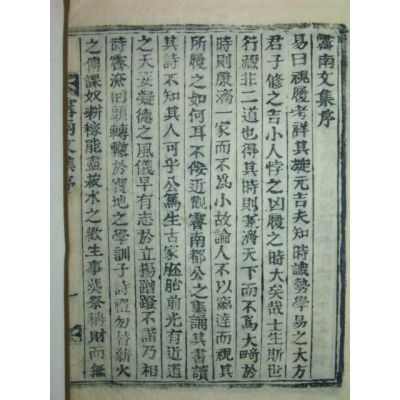 霽南文集序
易曰視履考祥其旋元吉夫知時識勢學易之大方
君子修之吉小人悖之凶履之時大矣哉士生斯世
行藏非二道也得其時則兼濟天下而不為大畸於
時則康濟一家而不為小故論人不以窮達而視其
所履之如何耳不佞近觀霽南都公之集誦其書讀
其詩不知其人可乎公篤生古家胚胎前光有近道
之天姿凝德之風儀早有志於立揚蹭蹬不諧乃相
時審流回頭轉轡於實地之學訓子詩禮勿替薪火
之傳課奴耕稼能盡菽水之歡生事葬祭稱財而無
霽南文集序
一